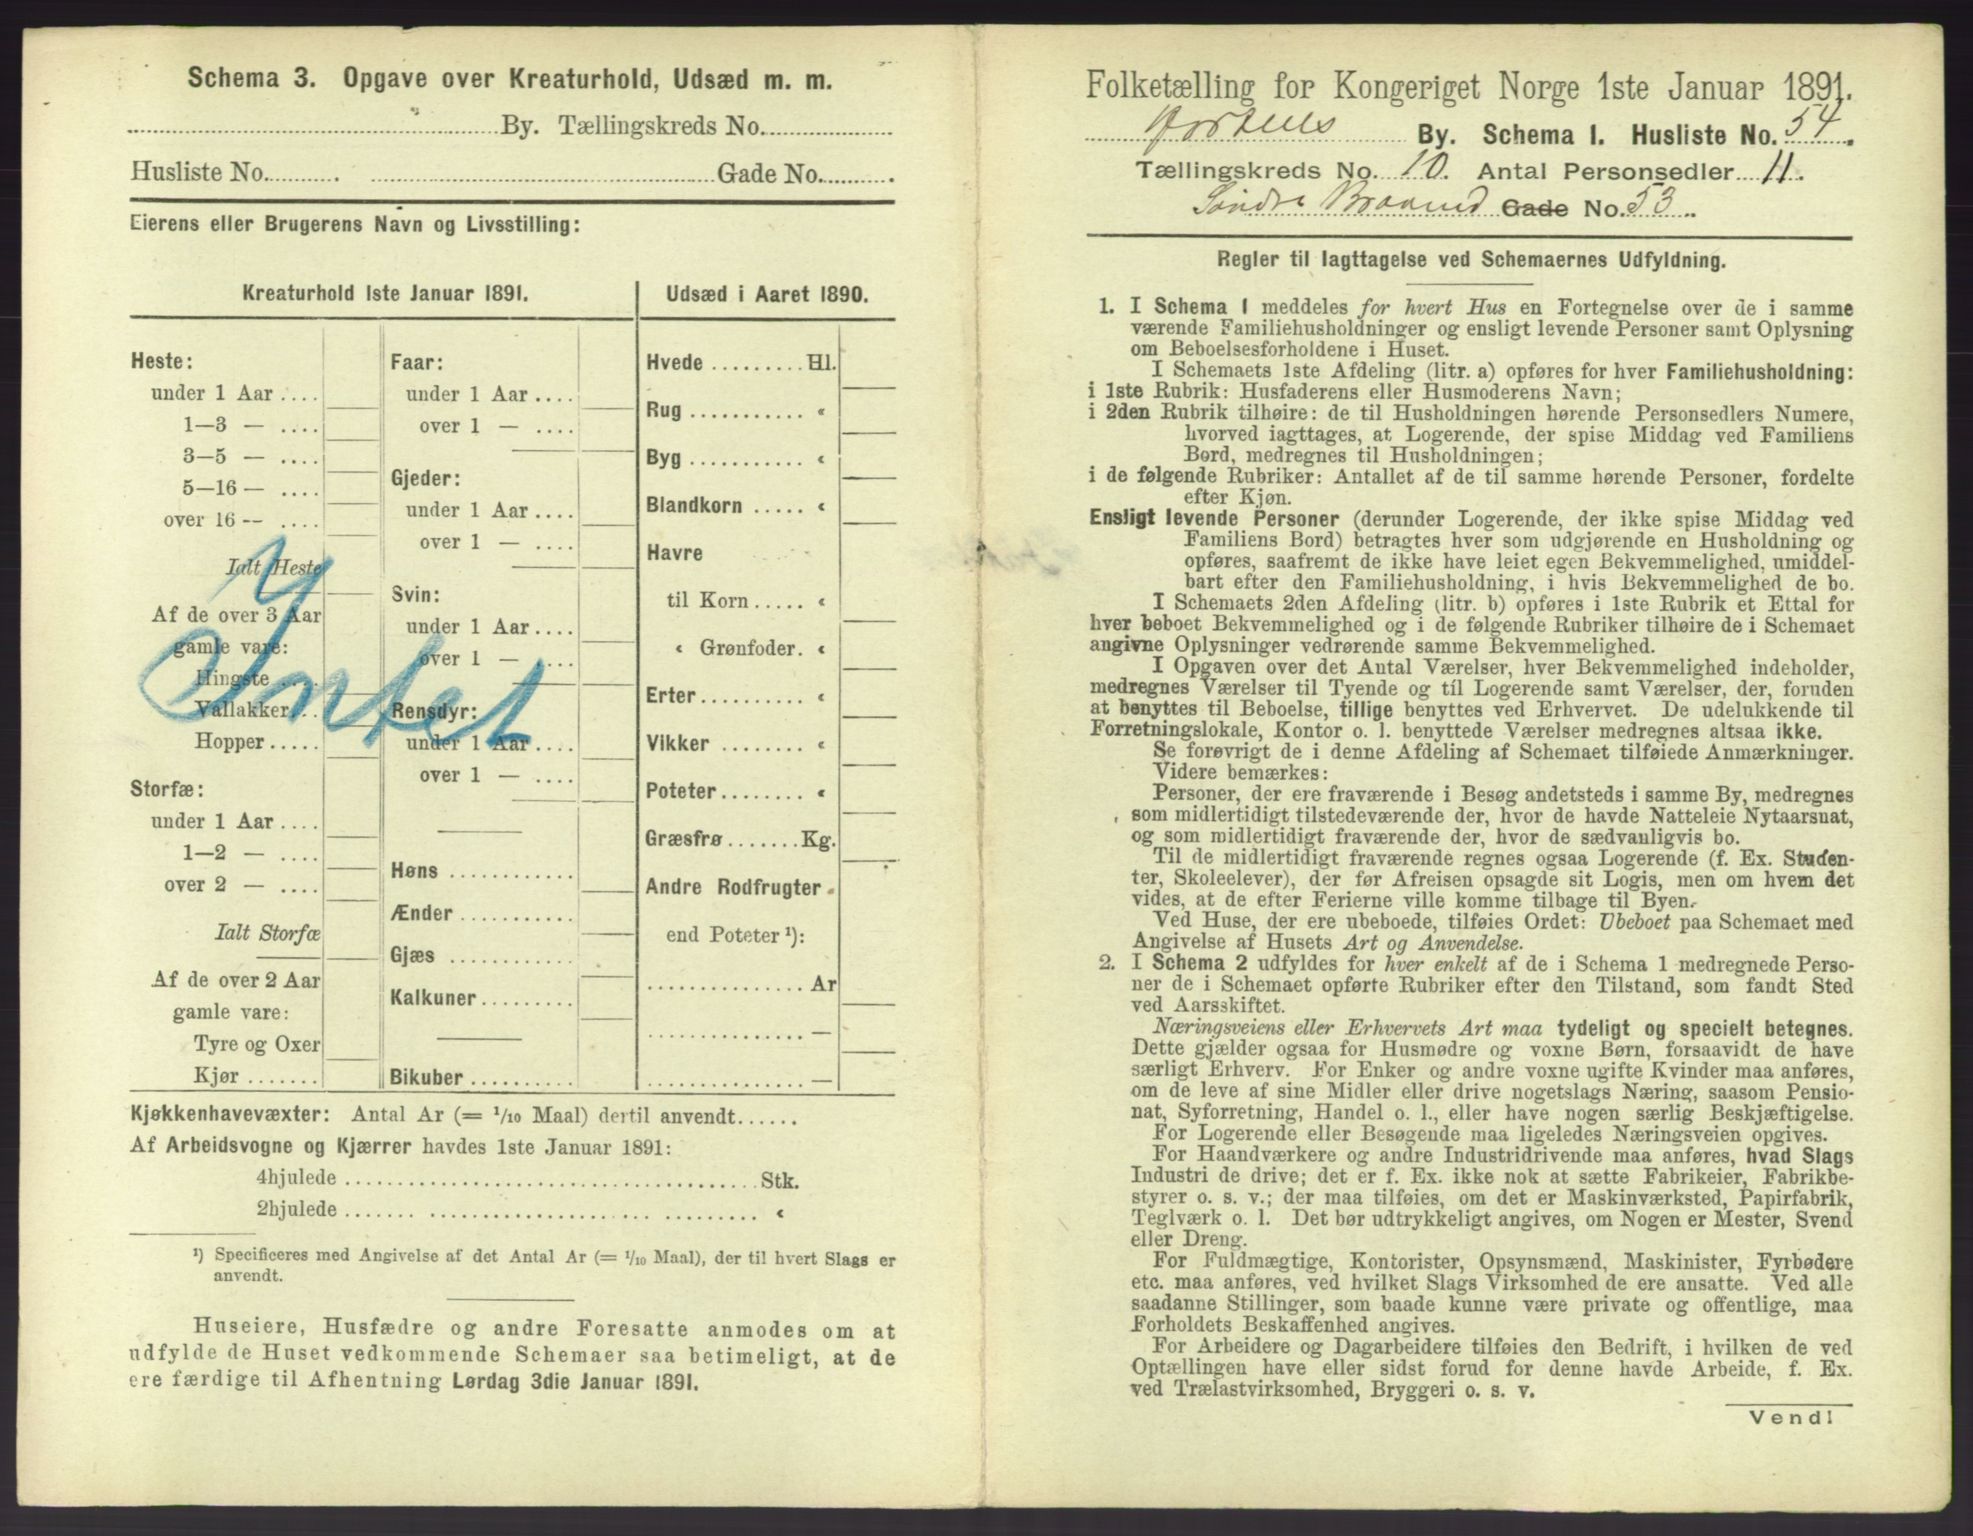 Schema 3. Opgave over Kreaturhold, Udsæd m. m.
By. Tællingskreds No.
Husliste No. Gade No.
Eierens eller Brugerens Navn og Livsstilling:
Kreaturhold 1ste Januar 1891.
Heste:
under 1 Aar ....
1—3 — ....
3—5 — ....
5—16 — ....
over 16 -- ....
Ialt Heste
Af de over 3 Aar
gamle vare:
Hingste ....
Vallakker...
Hopper.....
Storfæ:
under 1 Aar ....
1—2 — ....
over 2 — ....
Ialt Storfæ
Af de over 2 Aar
gamle vare:
Tyre og Oxer
Kjør .......
Intet
Faar:
under 1 Aar ....
over 1 — ....
Gjeder:
under 1 Aar ....
over 1 — ....
Svin:
under 1 Aar....
over 1 — ....
Rensdyr:
under 1 Aar....
over 1 — ....
Høns ............
Ænder ...........
Gjæs ............
Kalkuner.........
Bikuber ..........
Udsæd i Aaret 1890.
Hvede ......... Hl.
Rug ........... «
Byg ........... «
Blandkorn ..... «
Havre
til Korn ..... «
« Grønfoder. «
Erter .......... «
Vikker ........ «
Poteter........ «
Græsfrø ....... Kg.
Andre Rodfrugter
end Poteter ¹):
............... Ar
............... —
............... —
Kjøkkenhavevæxter: Antal Ar (= 1/10 Maal) dertil anvendt......
Af Arbeidsvogne og Kjærrer havdes 1ste Januar 1891:
4hjulede ........................................ Stk.
2hjulede ........................................ «
¹) Specificeres med Angivelse af det Antal Ar (= 1/10 Maal), der til hvert Slags er
anvendt.
Huseiere, Husfædre og andre Foresatte anmodes om at
udfylde de Huset vedkommende Schemaer saa betimeligt, at de
ere færdige til Afhentning Lørdag 3die Januar 1891.
Folketælling for Kongeriget Norge 1ste Januar 1891.
Hortens By. Schema I. Husliste No. 54.
Tællingskreds No. 10. Antal Personsedler 11.
Søndre Braarud Gade No. 53.
Regler til Iagttagelse ved Schemaernes Udfyldning.
1. I Schema 1 meddeles for hvert Hus en Fortegnelse over de i samme
værende Familiehusholdninger og ensligt levende Personer samt Oplysning
om Beboelsesforholdene i Huset.
I Schemaets 1ste Afdeling (litr. a) opføres for hver Familiehusholdning:
i 1ste Rubrik: Husfaderens eller Husmoderens Navn;
i 2den Rubrik tilhøire: de til Husholdningen hørende Personsedlers Numere,
hvorved iagttages, at Logerende, der spise Middag ved Familiens
Bord, medregnes til Husholdningen;
i de følgende Rubriker: Antallet af de til samme hørende Personer, fordelte
efter Kjøn.
Ensligt levende Personer (derunder Logerende, der ikke spise Middag ved
Familiens Bord) betragtes hver som udgjørende en Husholdning og
opføres, saafremt de ikke have leiet egen Bekvemmelighed, umiddel-
bart efter den Familiehusholdning, i hvis Bekvemmelighed de bo.
I Schemaets 2den Afdeling (litr. b) opføres i 1ste Rubrik et Ettal for
hver beboet Bekvemmelighed og i de følgende Rubriker tilhøire de i Schemaet
angivne Oplysninger vedrørende samme Bekvemmelighed.
I Opgaven over det Antal Værelser, hver Bekvemmelighed indeholder,
medregnes Værelser til Tyende og til Logerende samt Værelser, der, foruden
at benyttes til Beboelse, tillige benyttes ved Erhvervet. De udelukkende til
Forretningslokale, Kontor o. l. benyttede Værelser medregnes altsaa ikke.
Se forøvrigt de i denne Afdeling af Schemaet tilføiede Anmærkninger.
Videre bemærkes:
Personer, der ere fraværende i Besøg andetsteds i samme By, medregnes
som midlertidigt tilstedeværende der, hvor de havde Natteleie Nytaarsnat,
og som midlertidigt fraværende der, hvor de sædvanligvis bo.
Til de midlertidigt fraværende regnes ogsaa Logerende (f. Ex. Studen-
ter, Skoleelever), der før Afreisen opsagde sit Logis, men om hvem det
vides, at de efter Ferierne ville komme tilbage til Byen.
Ved Huse, der ere ubeboede, tilføies Ordet: Ubeboet paa Schemaet med
Angivelse af Husets Art og Anvendelse.
2. I Schema 2 udfyldes for hver enkelt af de i Schema 1 medregnede Perso-
ner de i Schemaet opførte Rubriker efter den Tilstand, som fandt Sted
ved Aarsskiftet.
Næringsveiens eller Erhvervets Art maa tydeligt og specielt betegnes.
Dette gjælder ogsaa for Husmødre og voxne Børn, forsaavidt de have
særligt Erhverv. For Enker og andre voxne ugifte Kvinder maa anføres,
om de leve af sine Midler eller drive nogetslags Næring, saasom Pensio-
nat, Syforretning, Handel o. l., eller have nogen særlig Beskjæftigelse.
For Logerende eller Besøgende maa ligeledes Næringsveien opgives.
For Haandværkere og andre Industridrivende maa anføres, hvad Slags
Industri de drive; det er f. Ex. ikke nok at sætte Fabrikeier, Fabrikbe-
styrer o. s. v.; der maa tilføies, om det er Maskinværksted, Papirfabrik,
Teglværk o. l. Det bør udtrykkeligt angives, om Nogen er Mester, Svend
eller Dreng.
For Fuldmægtige, Kontorister, Opsynsmænd, Maskinister, Fyrbødere
etc. maa anføres, ved hvilket Slags Virksomhed de ere ansatte. Ved alle
saadanne Stillinger, som baade kunne være private og offentlige, maa
Forholdets Beskaffenhed angives.
For Arbeidere og Dagarbeidere tilføies den Bedrift, i hvilken de ved
Optællingen have eller sidst forud for denne havde Arbeide, f. Ex.
ved Trælastvirksomhed, Bryggeri o. s. v.
Vend!